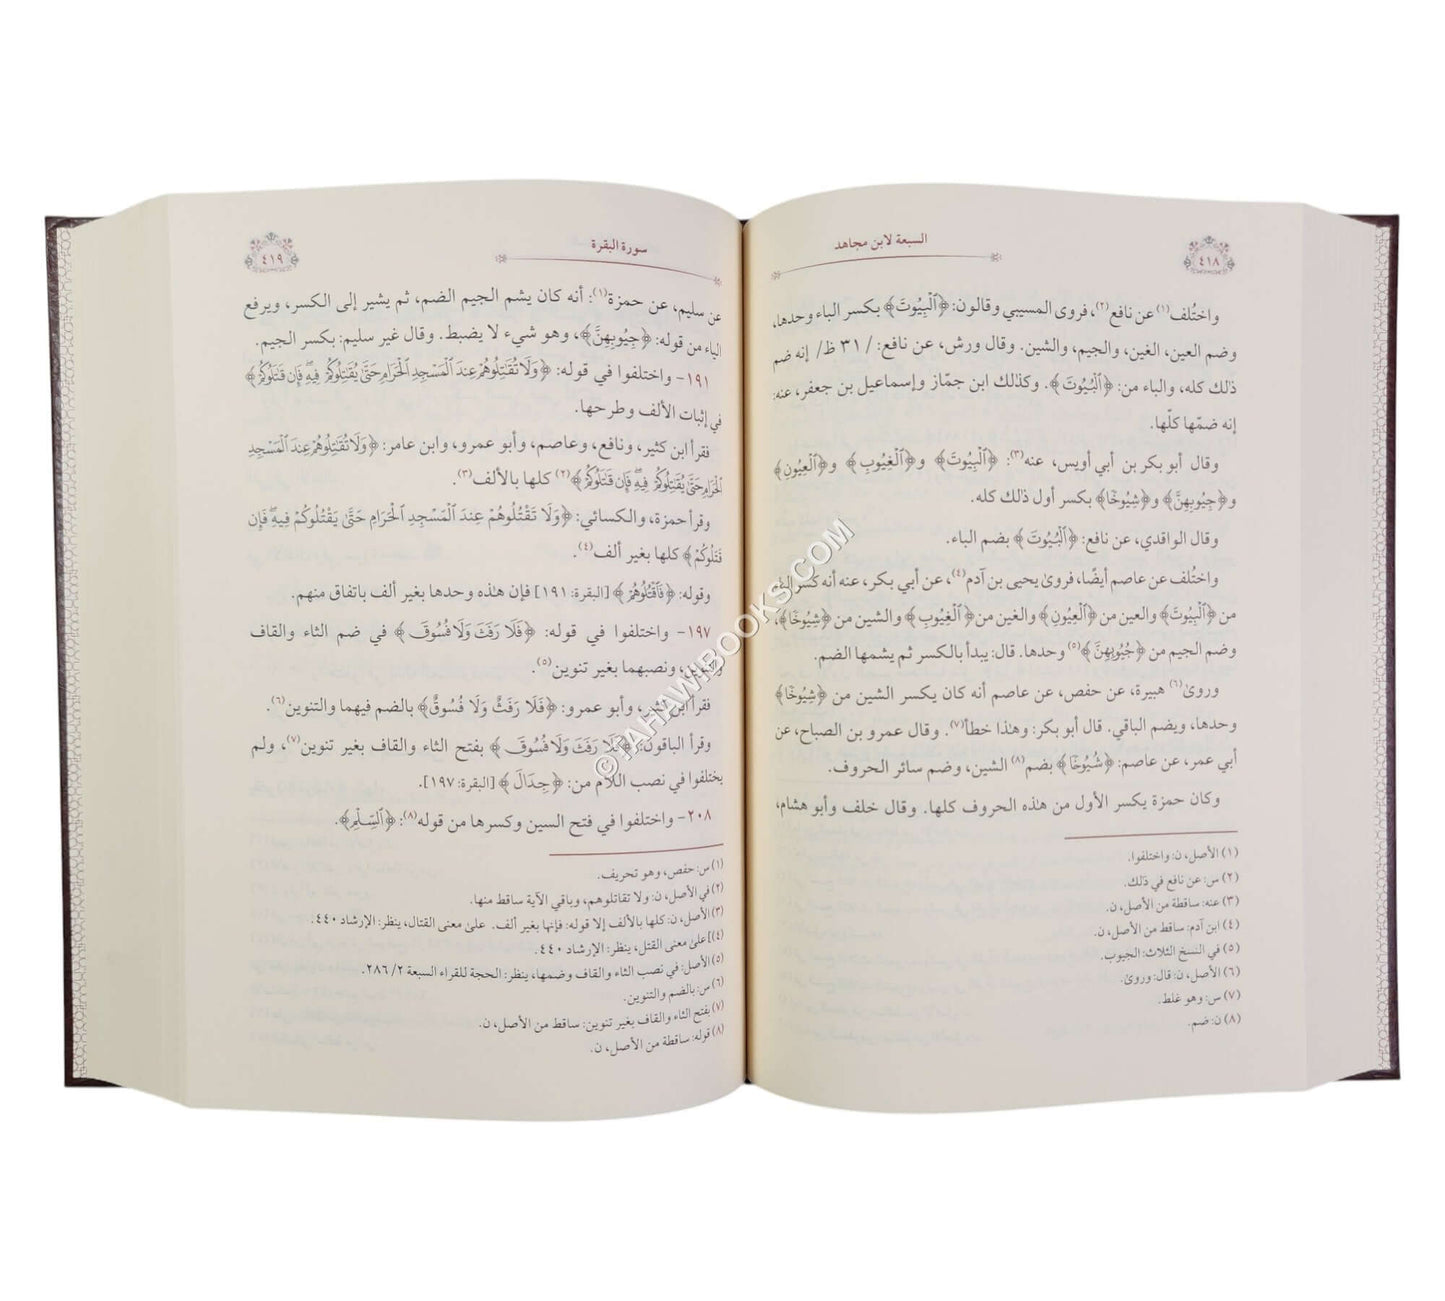 السبعة لابن مجاهد
٤١٨
واختُلف(١) عن نافع(٢)، فروى المسيبي وقالون: ﴿ٱلْبِيُوتَ﴾ بكسر الباء وحدها،
وضم العين، الغين، والجيم، والشين. وقال ورش، عن نافع: / ٣١ ظ/ إنه ضم
ذلك كله، والباء من: ﴿ٱلْبُيُوتَ﴾. وكذلك ابن جمّاز وإسماعيل بن جعفر، عنه:
إنه ضمّها كلّها.
وقال أبو بكر بن أبي أويس، عنه(٣): ﴿ٱلْبِيُوتَ﴾ و﴿ٱلْغِيُوبِ﴾ و﴿ٱلْعِيُونِ﴾
و﴿جِيُوبِهِنَّ﴾ و﴿شِيُوخًا﴾ بكسر أول ذلك كله.
وقال الواقدي، عن نافع: ﴿ٱلْبُيُوتَ﴾ بضم الباء.
واختُلف عن عاصم أيضًا، فروى يحيى بن آدم(٤)، عن أبي بكر، عنه أنه كسر الباء
من ﴿ٱلْبِيُوتَ﴾ والعين من ﴿ٱلْعِيُونِ﴾ والغين من ﴿ٱلْغِيُوبِ﴾ والشين من ﴿شِيُوخًا﴾،
وضم الجيم من ﴿جُيُوبِهِنَّ﴾(٥) وحدها. قال: يبدأ بالكسر ثم يشمها الضم.
وروى(٦) هبيرة، عن حفص، عن عاصم أنه كان يكسر الشين من ﴿شِيُوخًا﴾
وحدها، ويضم الباقي. قال أبو بكر: وهذا خطأ(٧). وقال عمرو بن الصباح، عن
أبي عمر، عن عاصم: ﴿شُيُوخًا﴾ بضم(٨) الشين، وضم سائر الحروف.
وكان حمزة يكسر الأول من هذه الحروف كلها. وقال خلف وأبو هشام،
(١) الأصل، ن: واختلفوا.
(٢) س: عن نافع في ذلك.
(٣) عنه: ساقطة من الأصل، ن.
(٤) ابن آدم: ساقط من الأصل، ن.
(٥) في النسخ الثلاث: الجيوب.
(٦) الأصل، ن: قال: وروى.
(٧) س: وهو غلط.
(٨) ن: ضم.
سورة البقرة
٤١٩
عن سليم، عن حمزة(١): أنه كان يشم الجيم الضم، ثم يشير إلى الكسر، ويرفع
الباء من قوله: ﴿جِيُوبِهِنَّ﴾، وهو شيء لا يضبط. وقال غير سليم: بكسر الجيم.
١٩١- واختلفوا في قوله: ﴿وَلَا تُقَٰتِلُوهُمْ عِندَ ٱلْمَسْجِدِ ٱلْحَرَامِ حَتَّىٰ يُقَٰتِلُوكُمْ فِيهِ ۖ فَإِن قَٰتَلُوكُمْ﴾
في إثبات الألف وطرحها.
فقرأ ابن كثير، ونافع، وعاصم، وأبو عمرو، وابن عامر: ﴿وَلَا تُقَٰتِلُوهُمْ عِندَ ٱلْمَسْجِدِ
ٱلْحَرَامِ حَتَّىٰ يُقَٰتِلُوكُمْ فِيهِ ۖ فَإِن قَٰتَلُوكُمْ﴾(٢) كلها بالألف(٣).
وقرأ حمزة، والكسائي: ﴿وَلَا تَقْتُلُوهُمْ عِندَ ٱلْمَسْجِدِ ٱلْحَرَامِ حَتَّىٰ يَقْتُلُوكُمْ فِيهِ ۖ فَإِن
قَتَلُوكُمْ﴾ كلها بغير ألف(٤).
وقوله: ﴿فَٱقْتُلُوهُمْ﴾ [البقرة: ١٩١] فإن هذه وحدها بغير ألف باتفاق منهم.
١٩٧- واختلفوا في قوله: ﴿فَلَا رَفَثَ وَلَا فُسُوقَ﴾ في ضم الثاء والقاف
والتنوين، ونصبهما بغير تنوين(٥).
فقرأ ابن كثير، وأبو عمرو: ﴿فَلَا رَفَثٌ وَلَا فُسُوقٌ﴾ بالضم فيهما والتنوين(٦).
وقرأ الباقون: ﴿فَلَا رَفَثَ وَلَا فُسُوقَ﴾ بفتح الثاء والقاف بغير تنوين(٧)، ولم
يختلفوا في نصب اللام من: ﴿جِدَالَ﴾ [البقرة: ١٩٧].
٢٠٨- واختلفوا في فتح السين وكسرها من قوله(٨): ﴿ٱلسِّلْمِ﴾.
(١) س: حفص، وهو تحريف.
(٢) في الأصل، ن: ولا تقاتلوهم، وباقي الآية ساقط منها.
(٣) الأصل، ن: كلها بالألف إلا قوله: فإنها بغير ألف. على معنى القتال، ينظر: الإرشاد ٤٤٠.
(٤) على معنى القتل، ينظر: الإرشاد ٤٤٠.
(٥) الأصل: في نصب الثاء والقاف وضمها، ينظر: الحجة للقراء السبعة ٢/ ٢٨٦.
(٦) س: بالضم والتنوين.
(٧) بفتح الثاء والقاف بغير تنوين: ساقط من الأصل، ن.
(٨) قوله: ساقطة من الأصل، ن.
© TAHAWIBOOKS.COM